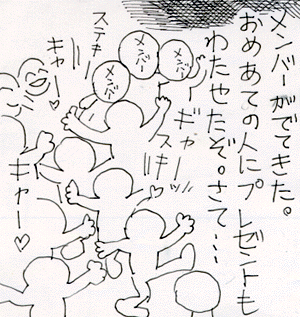 メンバーがでてきた。
おめあての人にプレゼントも
わたせたぞ。さて…
メンバー
メンバー
メンバー
ステキー
キャー
ギャーッ
スキー
キャー♡